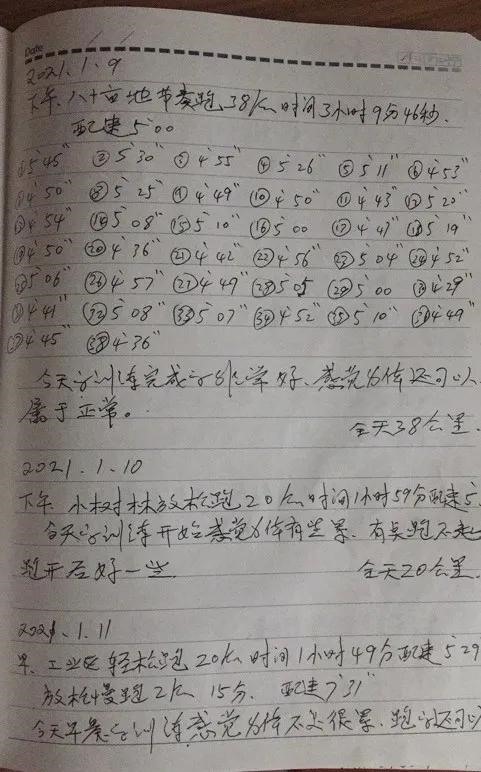 Date
2021.1.9
下午、八十亩地节奏跑38km时间3小时9分46秒.
配速5'00
①5'45" ②5'30" ③4'55" ④5'26" ⑤5'11" ⑥4'53"
⑦4'50" ⑧5'25" ⑨4'49" ⑩4'50" ⑪4'43" ⑫5'20"
⑬4'54" ⑭5'08" ⑮5'10" ⑯5'00 ⑰4'47" ⑱5'19"
⑲4'50" ⑳4'36" ㉑4'42" ㉒4'56" ㉓5'04" ㉔4'52"
㉕5'06" ㉖4'57" ㉗4'49" ㉘5'05 ㉙5'00 ㉚4'29"
㉛4'41" ㉜5'08" ㉝5'07" ㉞4'52" ㉟5'10" ㊱4'49"
㊲4'45" ㊳4'36"
今天的训练完成的非常好、感觉身体还可以
属于正常。
全天38公里.
2021.1.10
下午 小树林放松跑20km时间1小时59分配速5'
今天的训练开始感觉身体有些累、有点跑不起
跑开后好一些
全天20公里.
2021.1.11
早、工业区轻松跑20km时间1小时49分配速5'29
放松慢跑2km 15分. 配速7'31"
今天早晨的训练感觉身体不是很累、跑的还可以